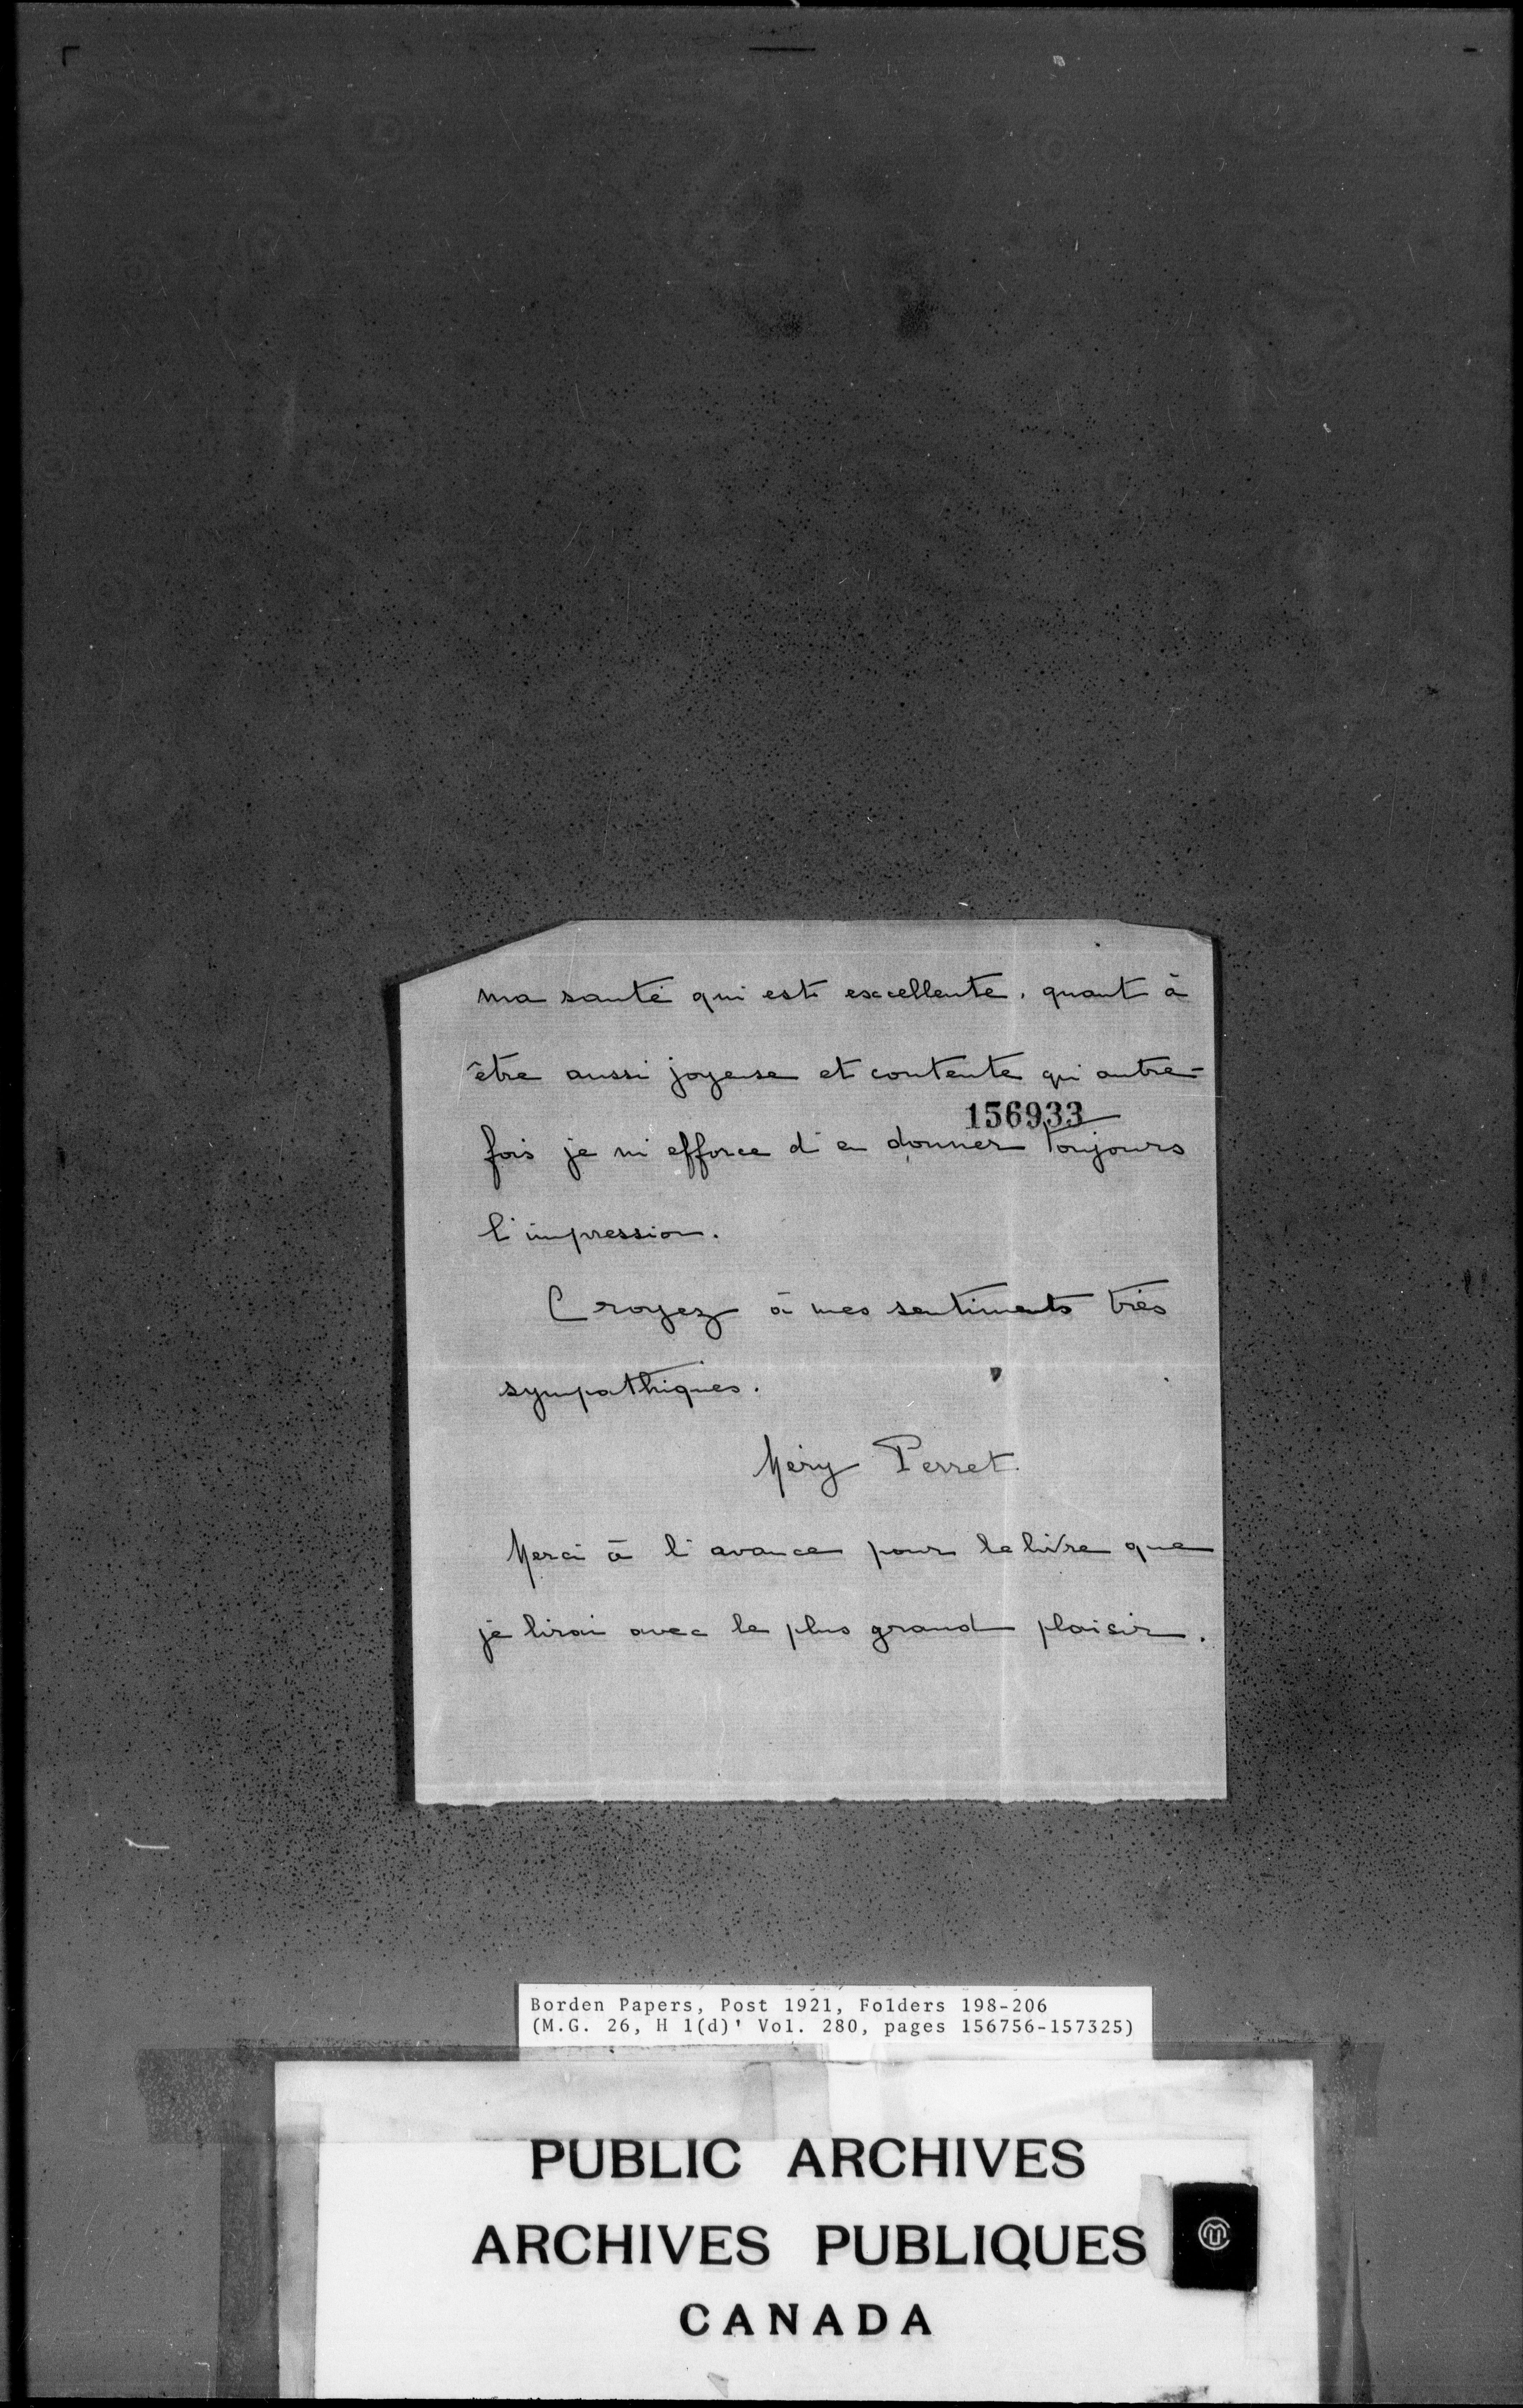 ma santé qui est excellente, quant à
être aussi joyeuse et contente qu'autre-
156933
fois je m'efforce d'en donner toujours
l'impression.
Croyez à mes sentiments très
sympathiques.
Méry Perret.
Merci à l'avance pour le livre que
je lirai avec le plus grand plaisir.
Borden Papers, Post 1921, Folders 198-206
(M.G. 26, H 1(d)' Vol. 280, pages 156756-157325)
PUBLIC ARCHIVES
ARCHIVES PUBLIQUES
CANADA